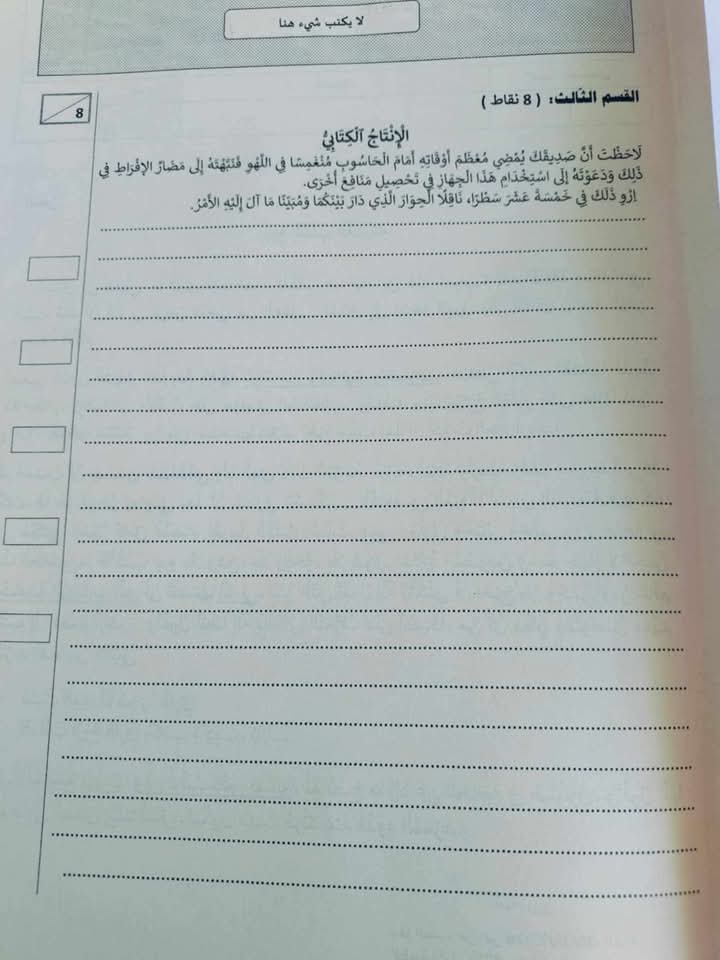 لا يكتب شيء هنا
القسم الثالث: ( 8 نقاط )
8
الْإِنْتَاجُ الْكِتَابِيُّ
لَاحَظْتَ أَنَّ صَدِيقَكَ يُمْضِي مُعْظَمَ أَوْقَاتِهِ أَمَامَ الْحَاسُوبِ مُنْغَمِسًا فِي اللَّهْوِ فَنَبَّهْتَهُ إِلَى مَضَارِّ الإِفْرَاطِ فِي
ذَلِكَ وَدَعَوْتَهُ إِلَى اسْتِخْدَامِ هَذَا الْجِهَازِ فِي تَحْصِيلِ مَنَافِعَ أُخْرَى.
اِرْوِ ذَلِكَ فِي خَمْسَةَ عَشَرَ سَطْرًا، نَاقِلًا الْحِوَارَ الَّذِي دَارَ بَيْنَكُمَا وَمُبَيِّنًا مَا آلَ إِلَيْهِ الْأَمْرُ.